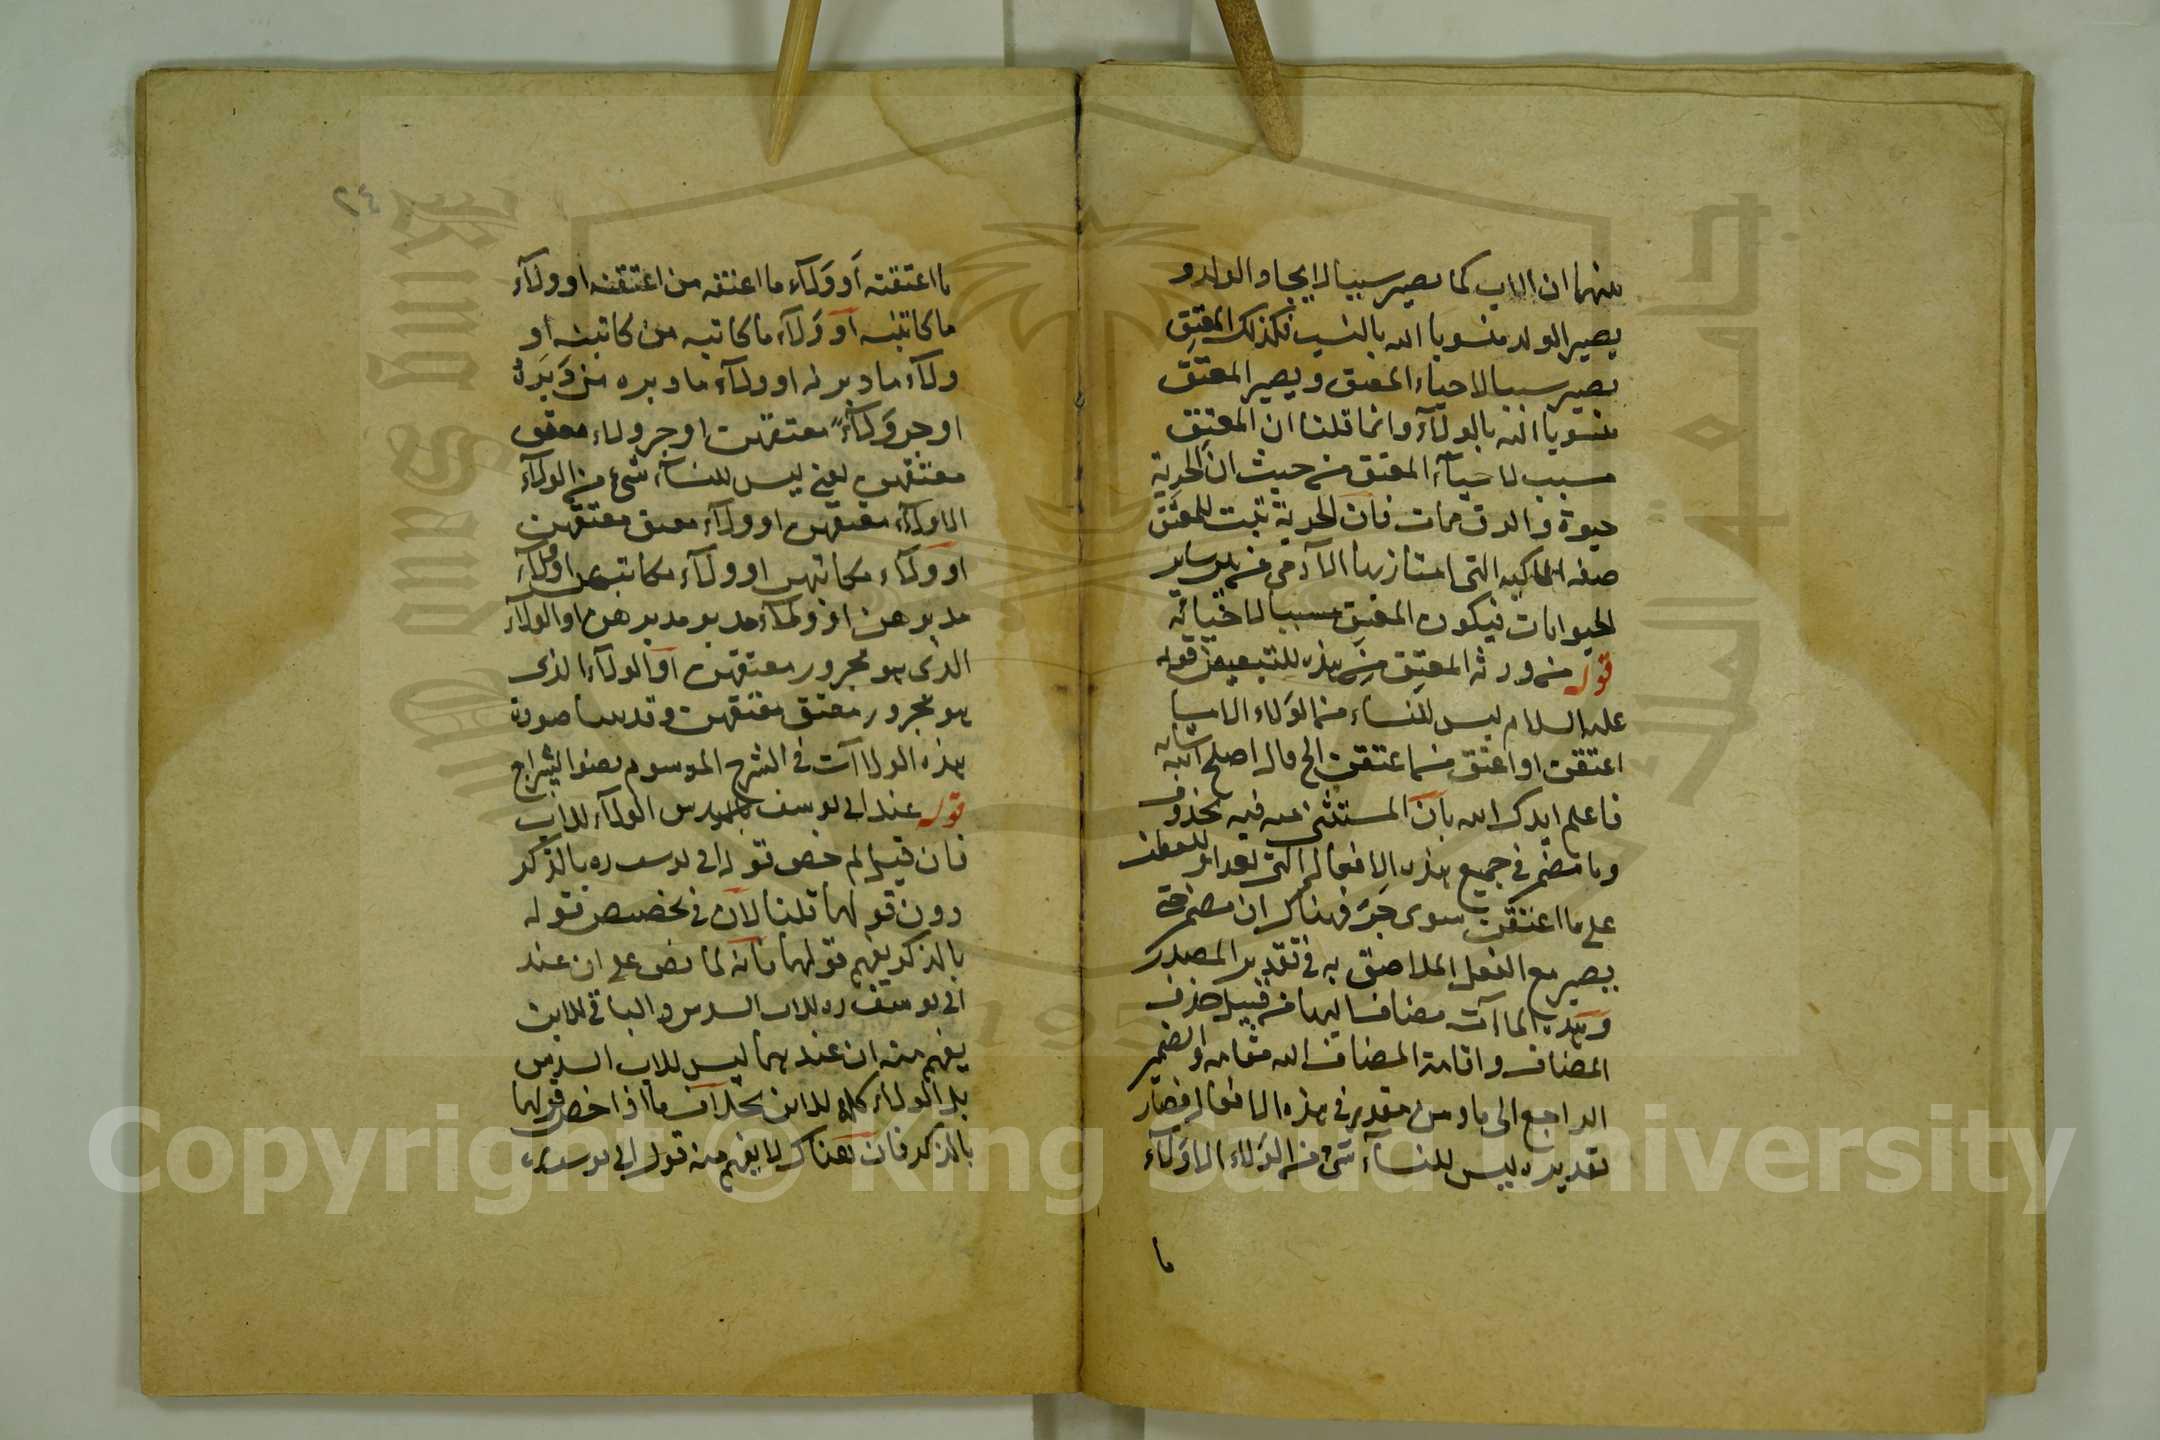 بينهما ان الاب كما يصير سببا لايجاد الولد و
يصير الولد منسوبا اليه بالنسب فكذلك المعتِق
يصير سببا لاحياء المعتق ويصير المعتَق
منسوبا اليه بالولآء وانما قلنا ان المعتِق
مسبب لاحيآء المعتق من حيث ان الحرية
حيوة والرق ممات فان الحرية تثبت للمعتَق
صفة المالكية التى امتاز بها الآدمى من سائر
الحيوانات فيكون المعتِق سببا لاحيائه
قوله من ورثه المعتِق مِن هذه للتبعيض قوله
عليه السلام ليس للنساء من الولاء الا ما
اعتقن او اعتق من اعتقن الح قال اصلح الله شانه
فاعلم ايدك الله بان المستثنى منه فيه محذوف
وما مضمر فى جميع هذه الافعال التى للعطف
على ما اعتقن سوى جَرّ فهناك ان مضمرة حتى
يصير مع الفعل الملاصق به فى تقدير المصدر
وهذه الماآت مضاف اليها من قبيل حذف
المضاف واقامة المضاف اليه مقامه والضمير
الراجع الى ما ومن مقدر فى هذه الافعال فصار
تقديره ليس للنسآء شئ من الوَلاء الا وَلآء
ما
٢٤
ما اعتقنه اَو وَلآء ما اعتقه من اعتقنه او ولآء
ما كاتبنه او وَلآء ما كاتبه من كاتبنه او
ولآء ما دبرنه او ولآء ما دبره من دَبرنه
او جر وَلآءً معتقهن او جر ولاء معتق
معتقهن يعنى ليس للنسآء شئ من الولآء
الا ولآء معتقهن او ولآء معتق معتقهن
او ولآء مكاتبهن او ولآء مكاتب مكاتبهن او ولآء
مدبرهن او ولآء مدبر مدبرهن او الولآء
الذى هو مجرور معتقهن او الولآء الذى
هو مجرور معتق معتقهن وقد بينا صورة
هذه الولاآت فى الشرح الموسوم بضوء السراج
قوله عند ابى يوسف سدس الولآء للاب
فان قيل لم خص قول ابى يوسف ره بالذكر
دون قولهما قلنا لان فى تخصيص قوله
بالذكر يفهم قولهما فانه لما نص على ان عند
ابى يوسف ره للاب السدس والباقى للابن
يفهم منه ان عندهما ليس للاب السدس
بل الولاء كله للابن بخلاف ما اذا خص قولهما
بالذكر فان هناك لا يفهم منه قول ابى يوسف ره
Copyright © King Saud University
King Saud University
جامعة الملك سعود
195